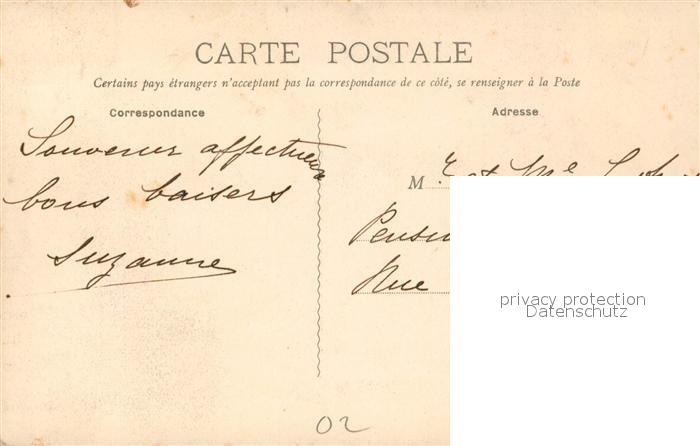 CARTE POSTALE
Certains pays étrangers n'acceptant pas la correspondance de ce côté, se renseigner à la Poste
Correspondance
Adresse
Souvenir affectueux
bons baisers
Suzanne
M
et Me
Rue
privacy protection
Datenschutz
02